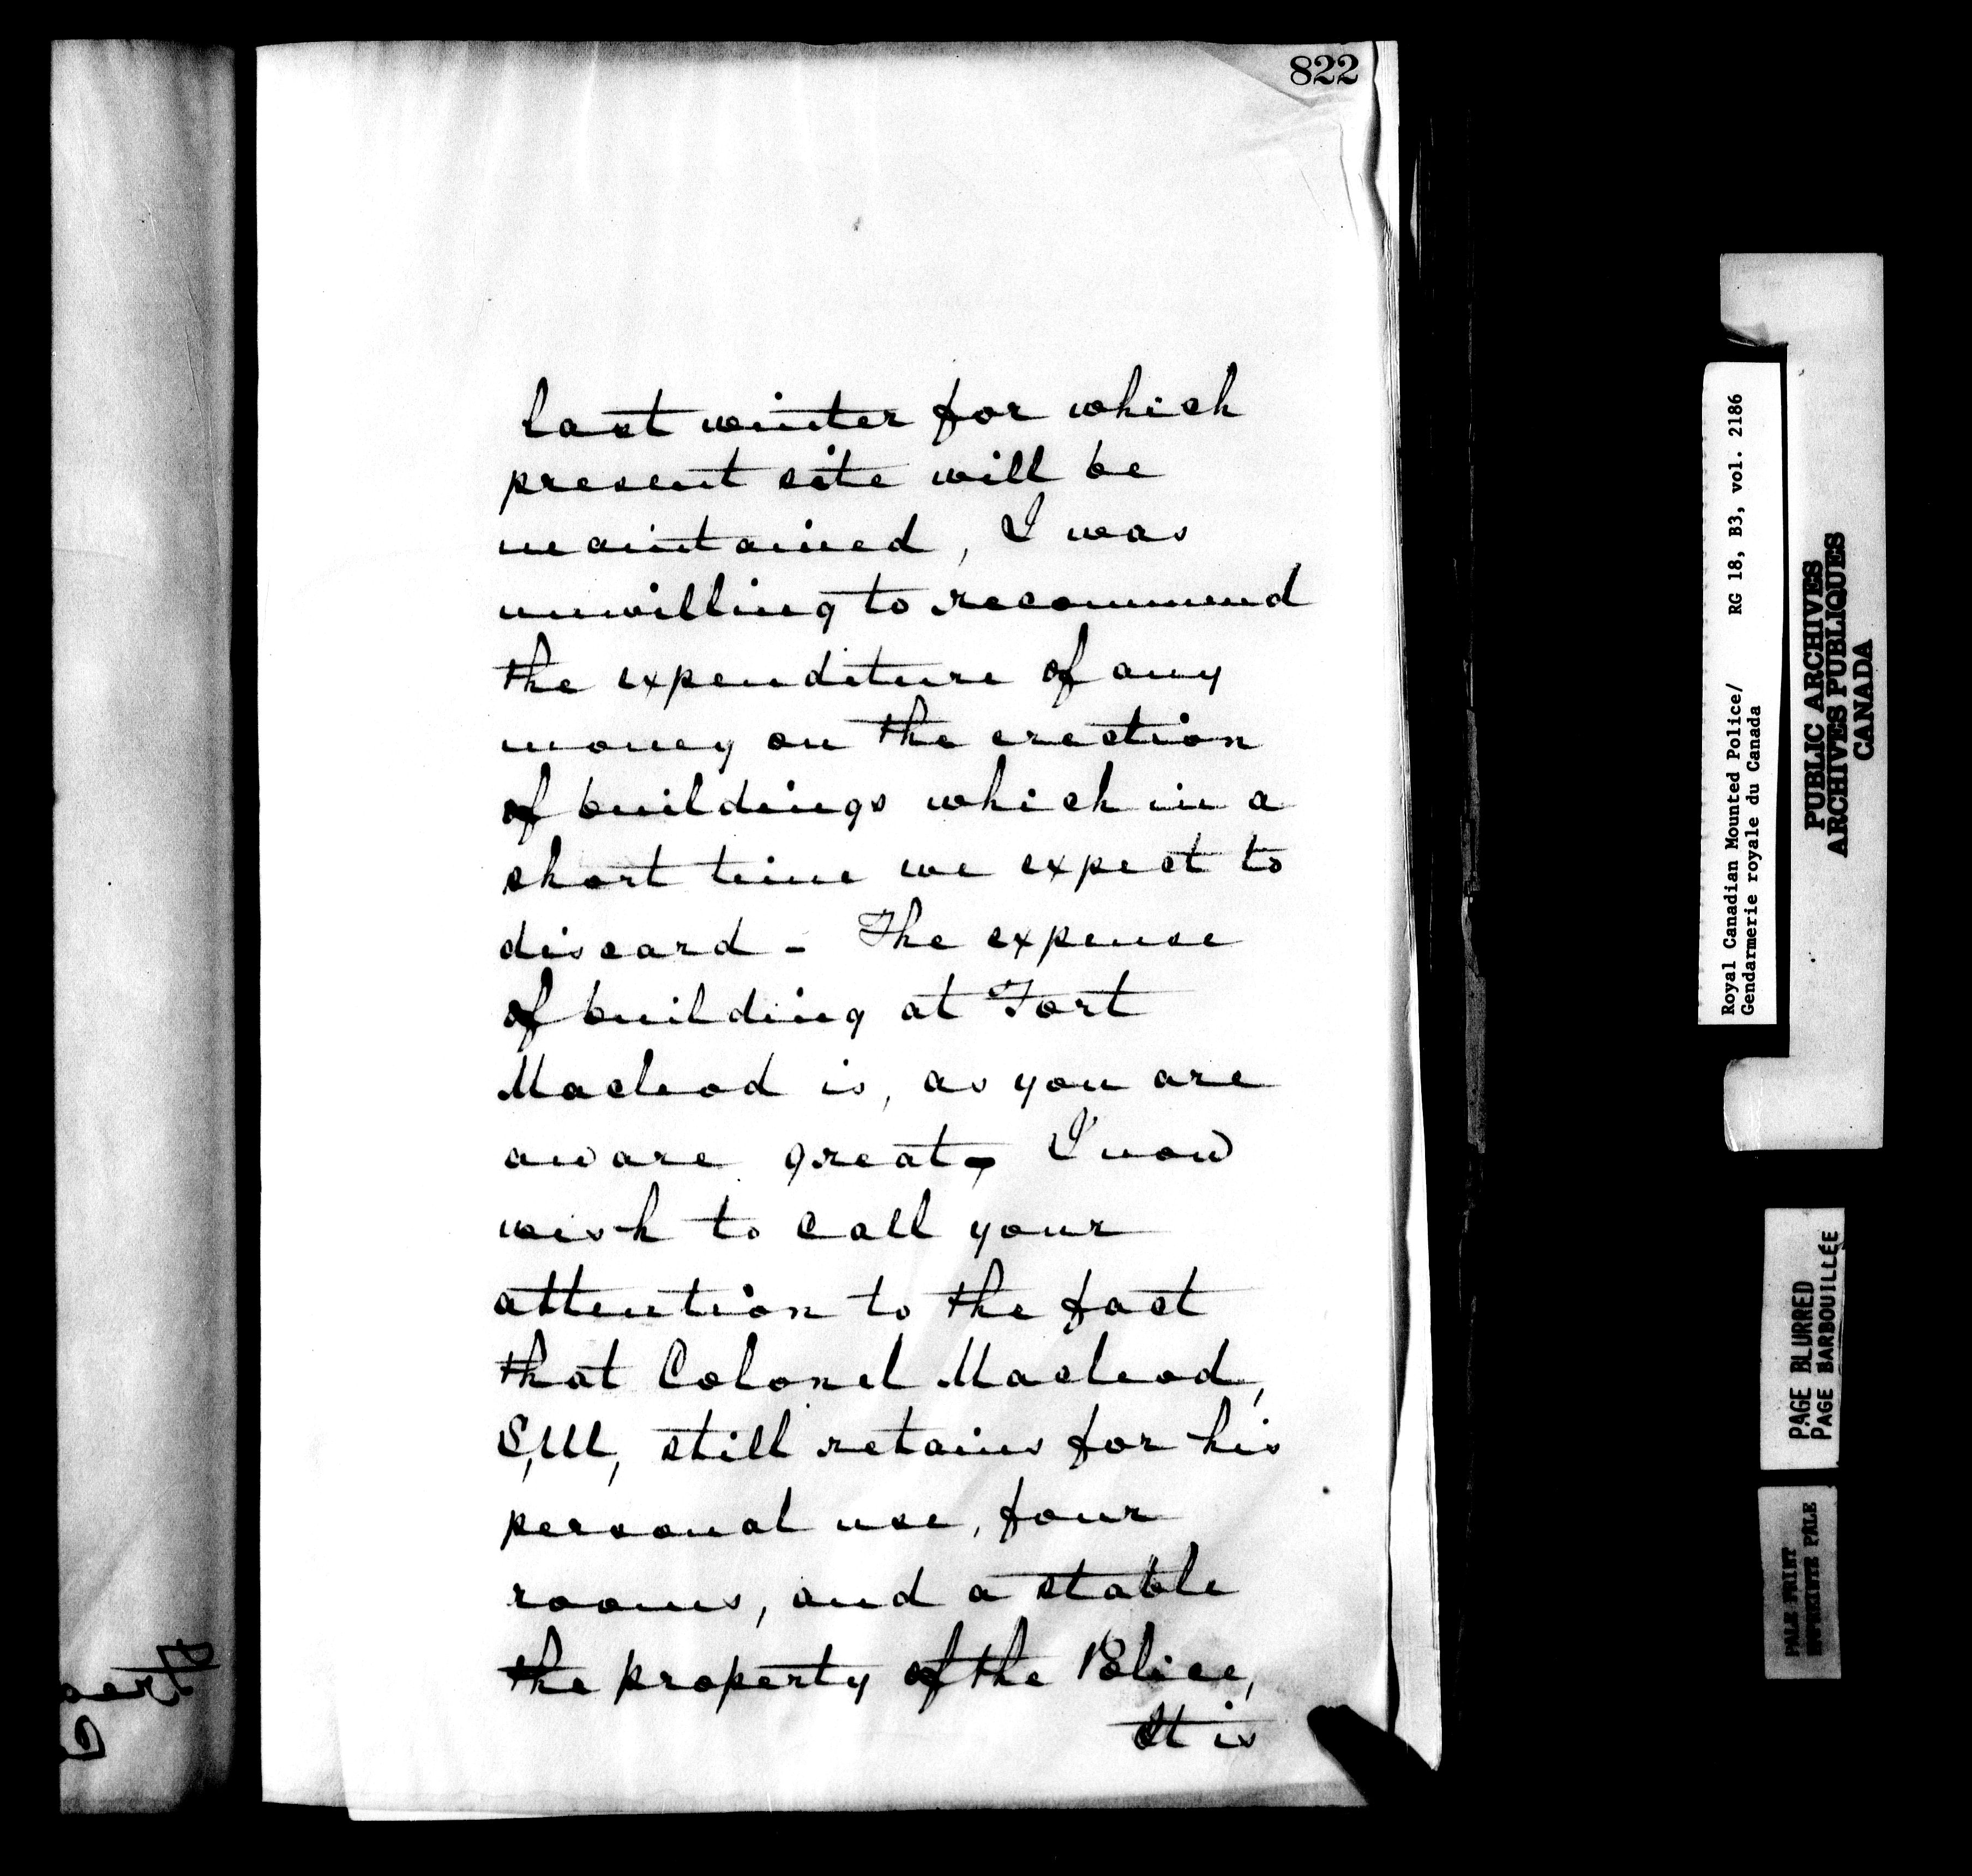 822
last winter for which
present site will be
maintained, I was
unwilling to recommend
the expenditure of any
money on the erection
of buildings which in a
short time we expect to
discard - The expense
of building at Fort
Macleod is, as you are
aware great - I now
wish to call your
attention to the fact
that Colonel Macleod,
S,M, still retains for his
personal use, four
rooms, and a stable
the property of the Police,
It is
Royal Canadian Mounted Police/ RG 18, B3, vol. 2186
Gendarmerie royale du Canada
PUBLIC ARCHIVES
ARCHIVES PUBLIQUES
CANADA
PAGE BLURRED
PAGE BARBOUILLÉE
PALE PRINT
PALE